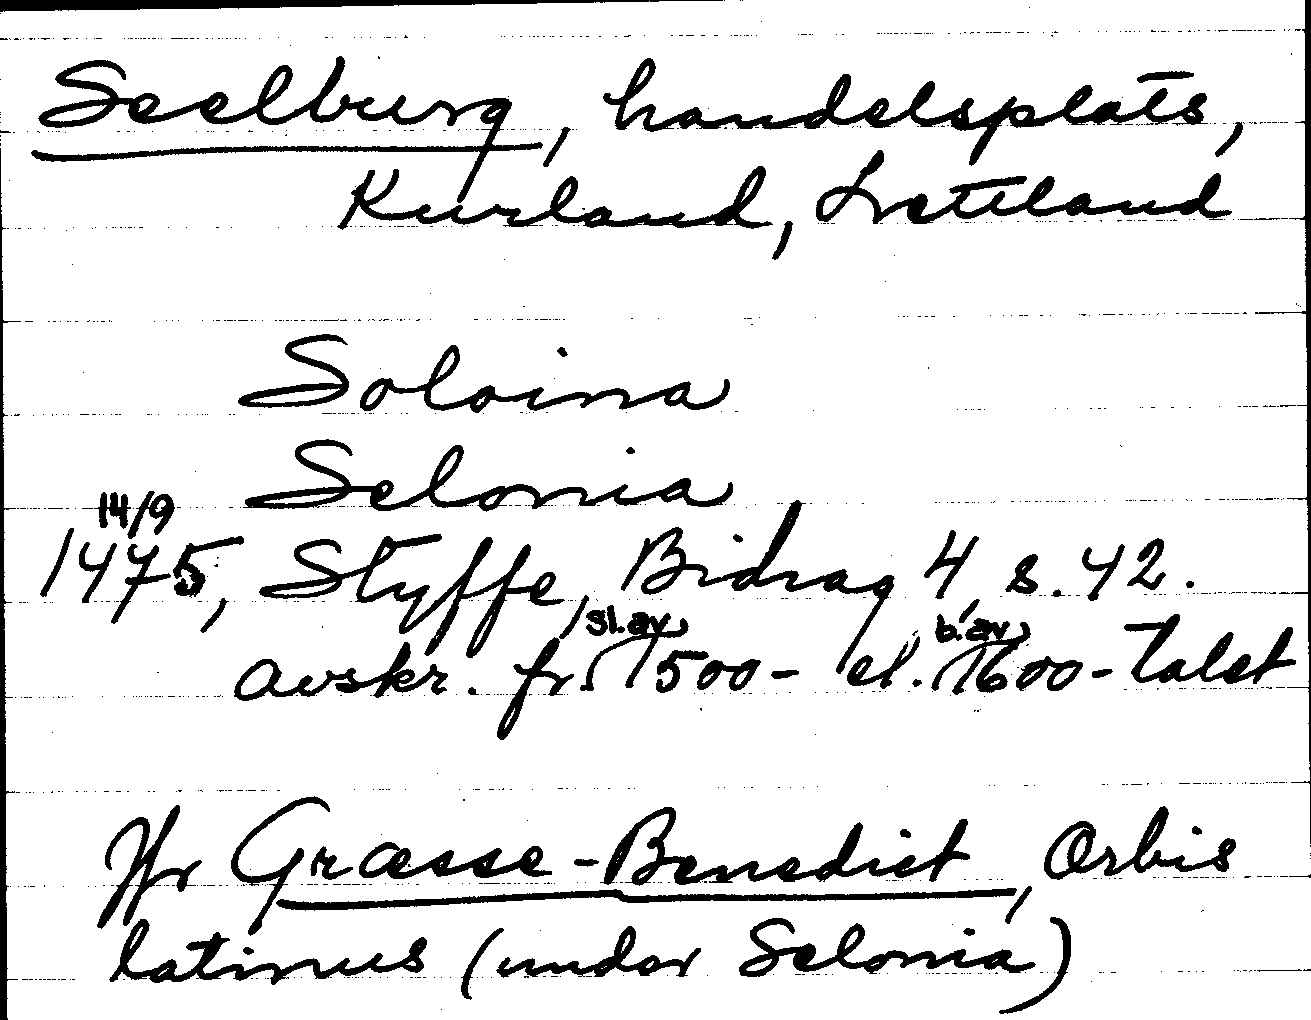 Seelburg, handelsplats,
Kurland, Lettland
Soloina
Selonia
14/9
1475, Styffe, Bidrag 4, s. 42.
sl. av b. av
avskr. fr. 1500- el. 1600-talet
Jfr Græsse-Benedict, Orbis
latinus (under Selonia)